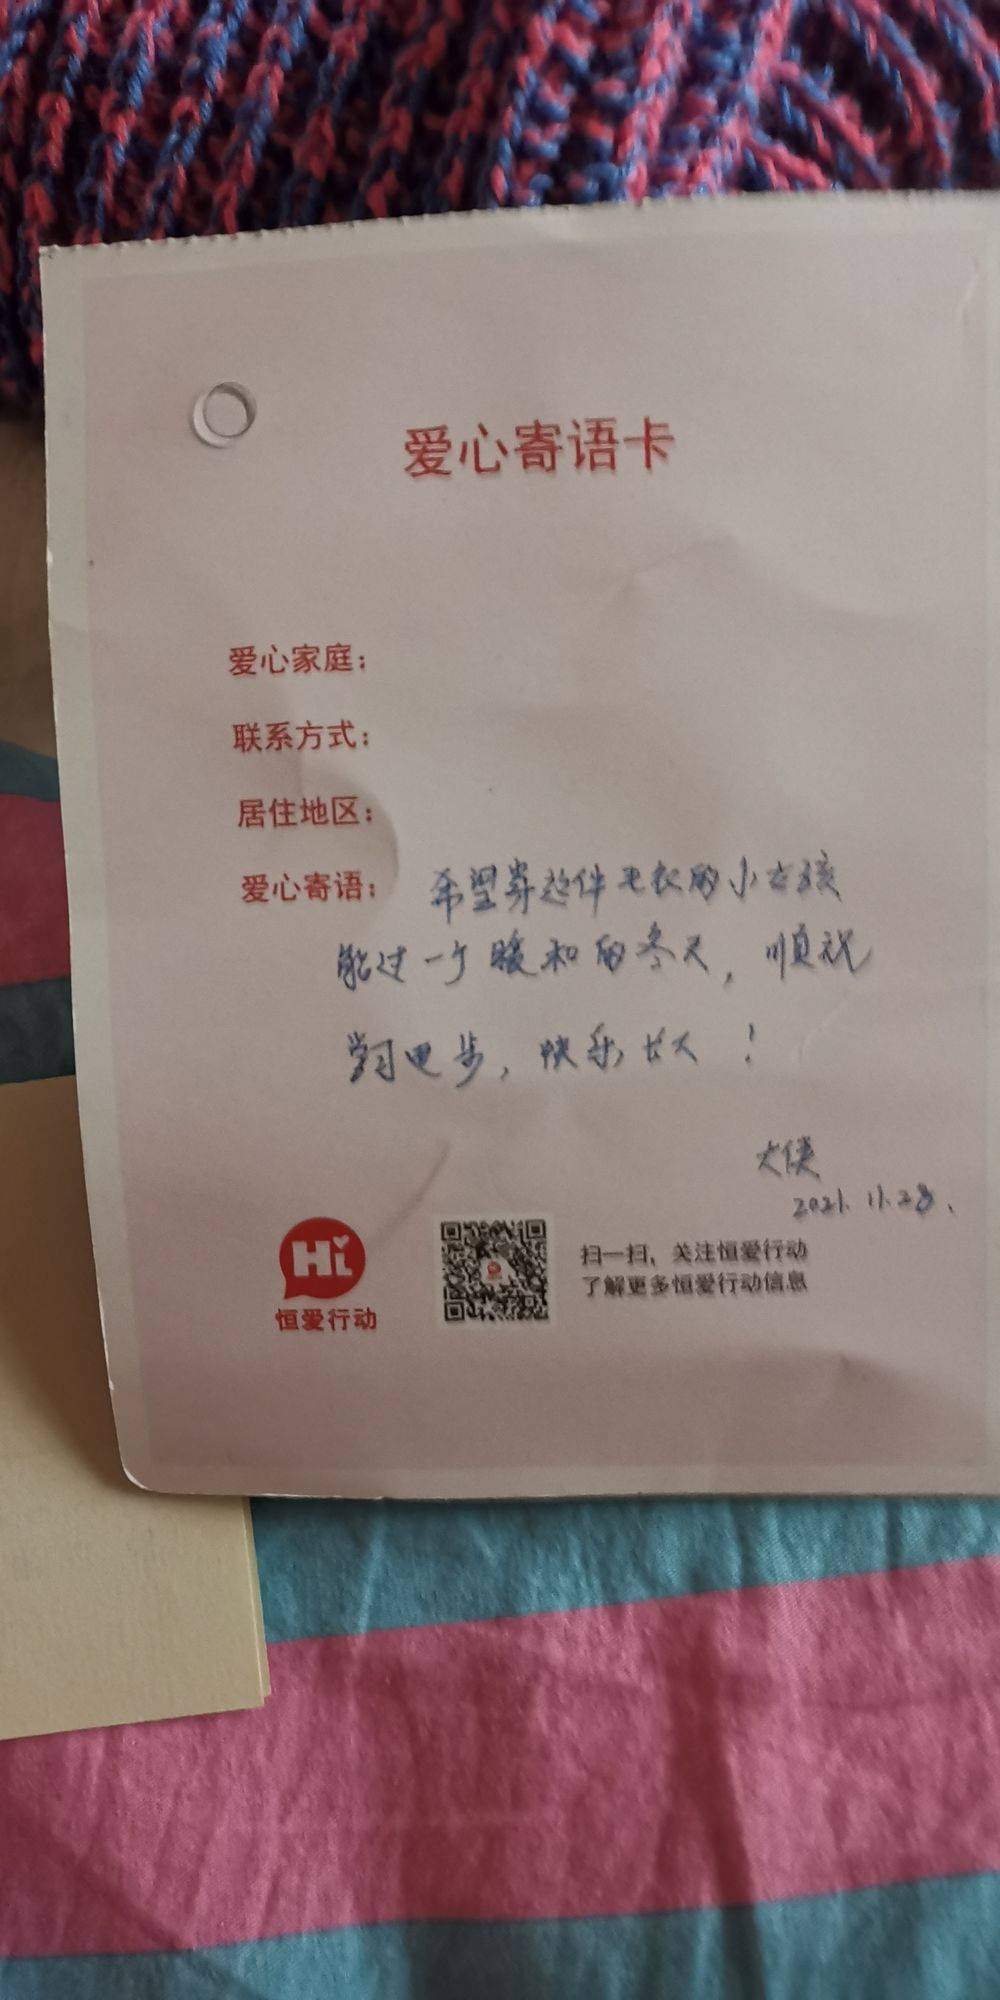 爱心寄语卡
爱心家庭：
联系方式：
居住地区：
爱心寄语： 希望穿这件毛衣的小女孩
能过一个暖和的冬天，顺祝
学习进步，快乐长大！
大侠
2021.11.28.
Hi
恒爱行动
扫一扫，关注恒爱行动
了解更多恒爱行动信息